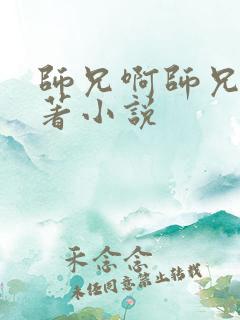 師兄啊師兄
著小説
采念念
未经同意禁止转载